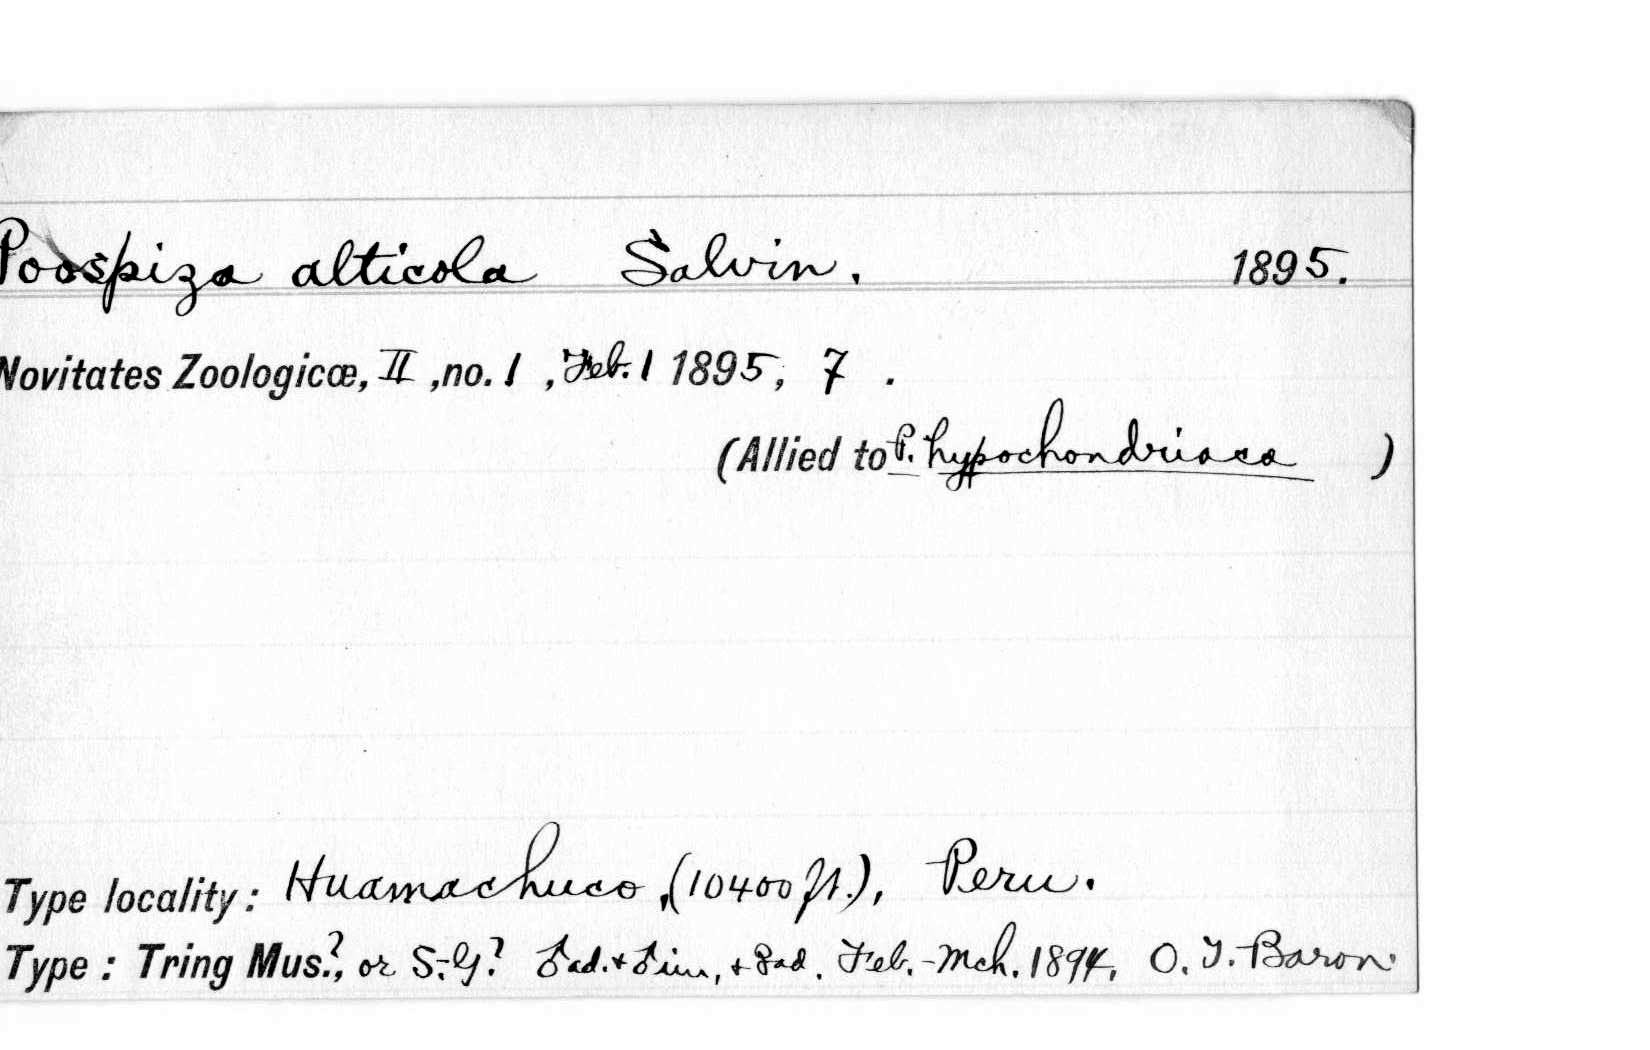 Poospiza alticola Salvin. 1895.
Novitates Zoologicæ, II, no. 1, Feb. 1 1895, 7.
(Allied to P. hypochondriaca)
Type locality: Huamachuco, (10400 ft.), Peru.
Type: Tring Mus.?, or S.-G? ♂ ad. + ♂ imm, + ♀ ad. Feb.-Mch. 1894, O. T. Baron.